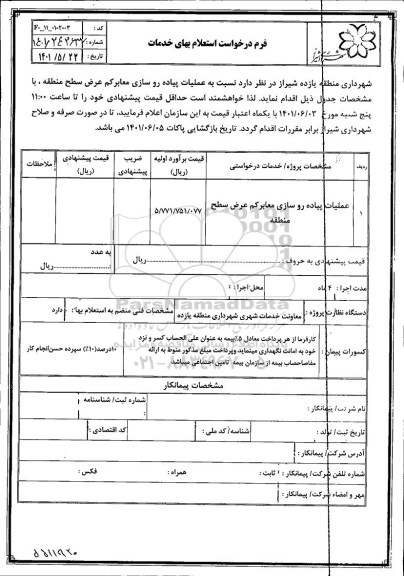 فرم درخواست استعلام بهای خدمات
کد :
شماره :
تاریخ : ۱۴۰۱/۵/۲۲
شهرداری منطقه یازده شیراز در نظر دارد نسبت به عملیات پیاده رو سازی معابرکم عرض سطح منطقه ، با
مشخصات جدول ذیل اقدام نماید. لذا خواهشمند است حداقل قیمت پیشنهادی خود را تا ساعت ۱۱:۰۰
پنج شنبه مورخ ۱۴۰۱/۰۶/۰۳ با یکماه اعتبار قیمت به این سازمان اعلام فرمایید، تا در صورت صرفه و صلاح
شهرداری شیراز برابر مقررات اقدام گردد. تاریخ بازگشایی پاکات ۱۴۰۱/۰۶/۰۵ می باشد.
ردیف
مشخصات پروژه/ خدمات درخواستی
قیمت برآورد اولیه (ریال)
ضریب پیشنهادی
قیمت پیشنهادی (ریال)
ملاحظات
۱
عملیات پیاده رو سازی معابرکم عرض سطح
منطقه
۵/۷۷۱/۷۵۱/۰۷۷
قیمت پیشنهادی به حروف : ریال
به عدد : ریال
مدت اجرا : ۴ ماه
محل اجرا :
دستگاه نظارت پروژه :
معاونت خدمات شهری شهرداری منطقه یازده
مشخصات فنی منضم به استعلام بها: دارد
کسورات پیمان :
کارفرما از هر پرداخت معادل ۵٪بیمه به عنوان علی الحساب کسر و نزد
خود به امانت نگهداری مینماید وپرداخت مبلغ مذکور منوط به ارائه
مفاصاحساب بیمه تامین اجتماعی میباشد.
۱۰درصد(۱۰٪) سپرده حسن انجام کار
ParsNamadData
۰۲۱-۸۸۳۴۹۶۷۰
مشخصات پیمانکار
نام شرکت/ پیمانکار:
شماره ثبت/ شناسنامه :
تاریخ ثبت/ تولد :
شناسه/ کد ملی :
کد اقتصادی :
آدرس شرکت/ پیمانکار :
شماره تلفن شرکت/ پیمانکار: ثابت :
همراه :
فکس :
مهر و امضاء شرکت/ پیمانکار :